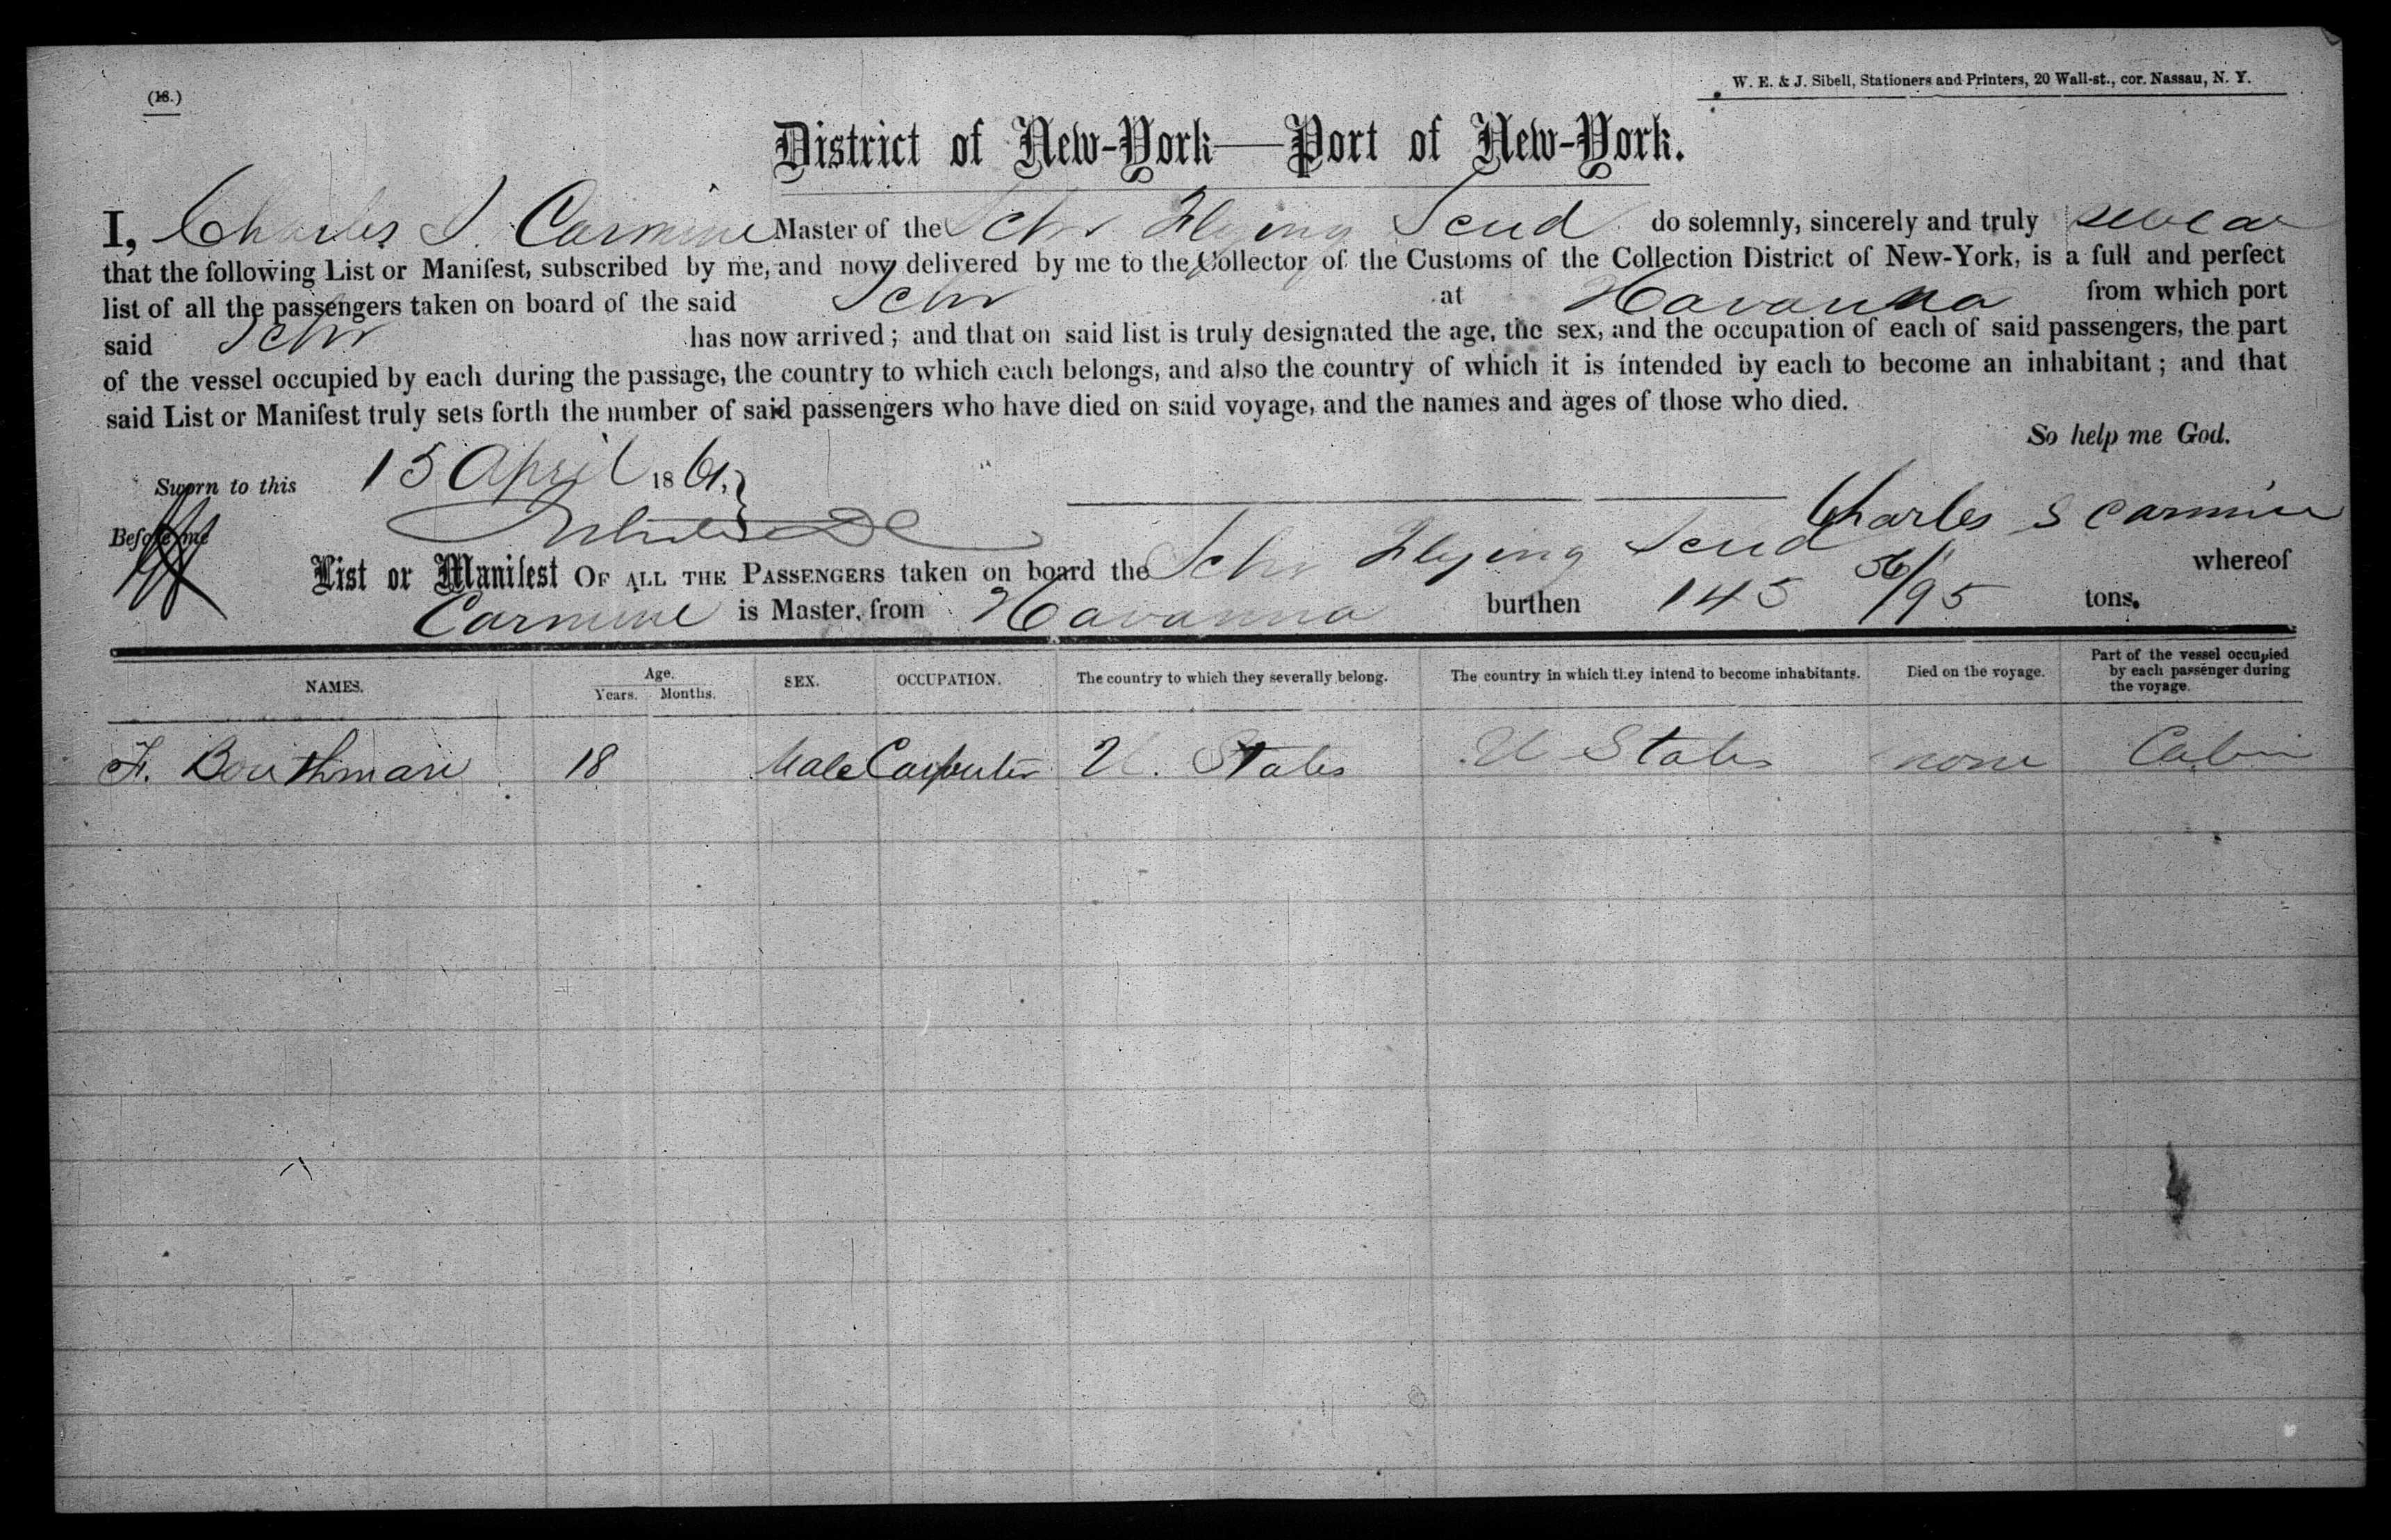 (18.)
W. E. & J. Sibell, Stationers and Printers, 20 Wall-st., cor. Nassau, N. Y.
District of New-York—Port of New-York.
I, Charles S. Carmine Master of the Schr Flying Scud do solemnly, sincerely and truly swear
that the following List or Manifest, subscribed by me, and now delivered by me to the Collector of the Customs of the Collection District of New-York, is a full and perfect
list of all the passengers taken on board of the said Schr at Havanna from which port
said Schr has now arrived; and that on said list is truly designated the age, the sex, and the occupation of each of said passengers, the part
of the vessel occupied by each during the passage, the country to which each belongs, and also the country of which it is intended by each to become an inhabitant; and that
said List or Manifest truly sets forth the number of said passengers who have died on said voyage, and the names and ages of those who died.
So help me God.
Sworn to this 15 April 1861,
Charles S Carmine
Before me
List or Manifest OF ALL THE PASSENGERS taken on board the Schr Flying Scud whereof
Carmine is Master, from Havanna burthen 145 56/95 tons.
NAMES. Age. Years. Months. SEX. OCCUPATION. The country to which they severally belong. The country in which they intend to become inhabitants. Died on the voyage. Part of the vessel occupied by each passenger during the voyage.
F. Bouthman 18 Male Carpenter U. States U States none Cabin